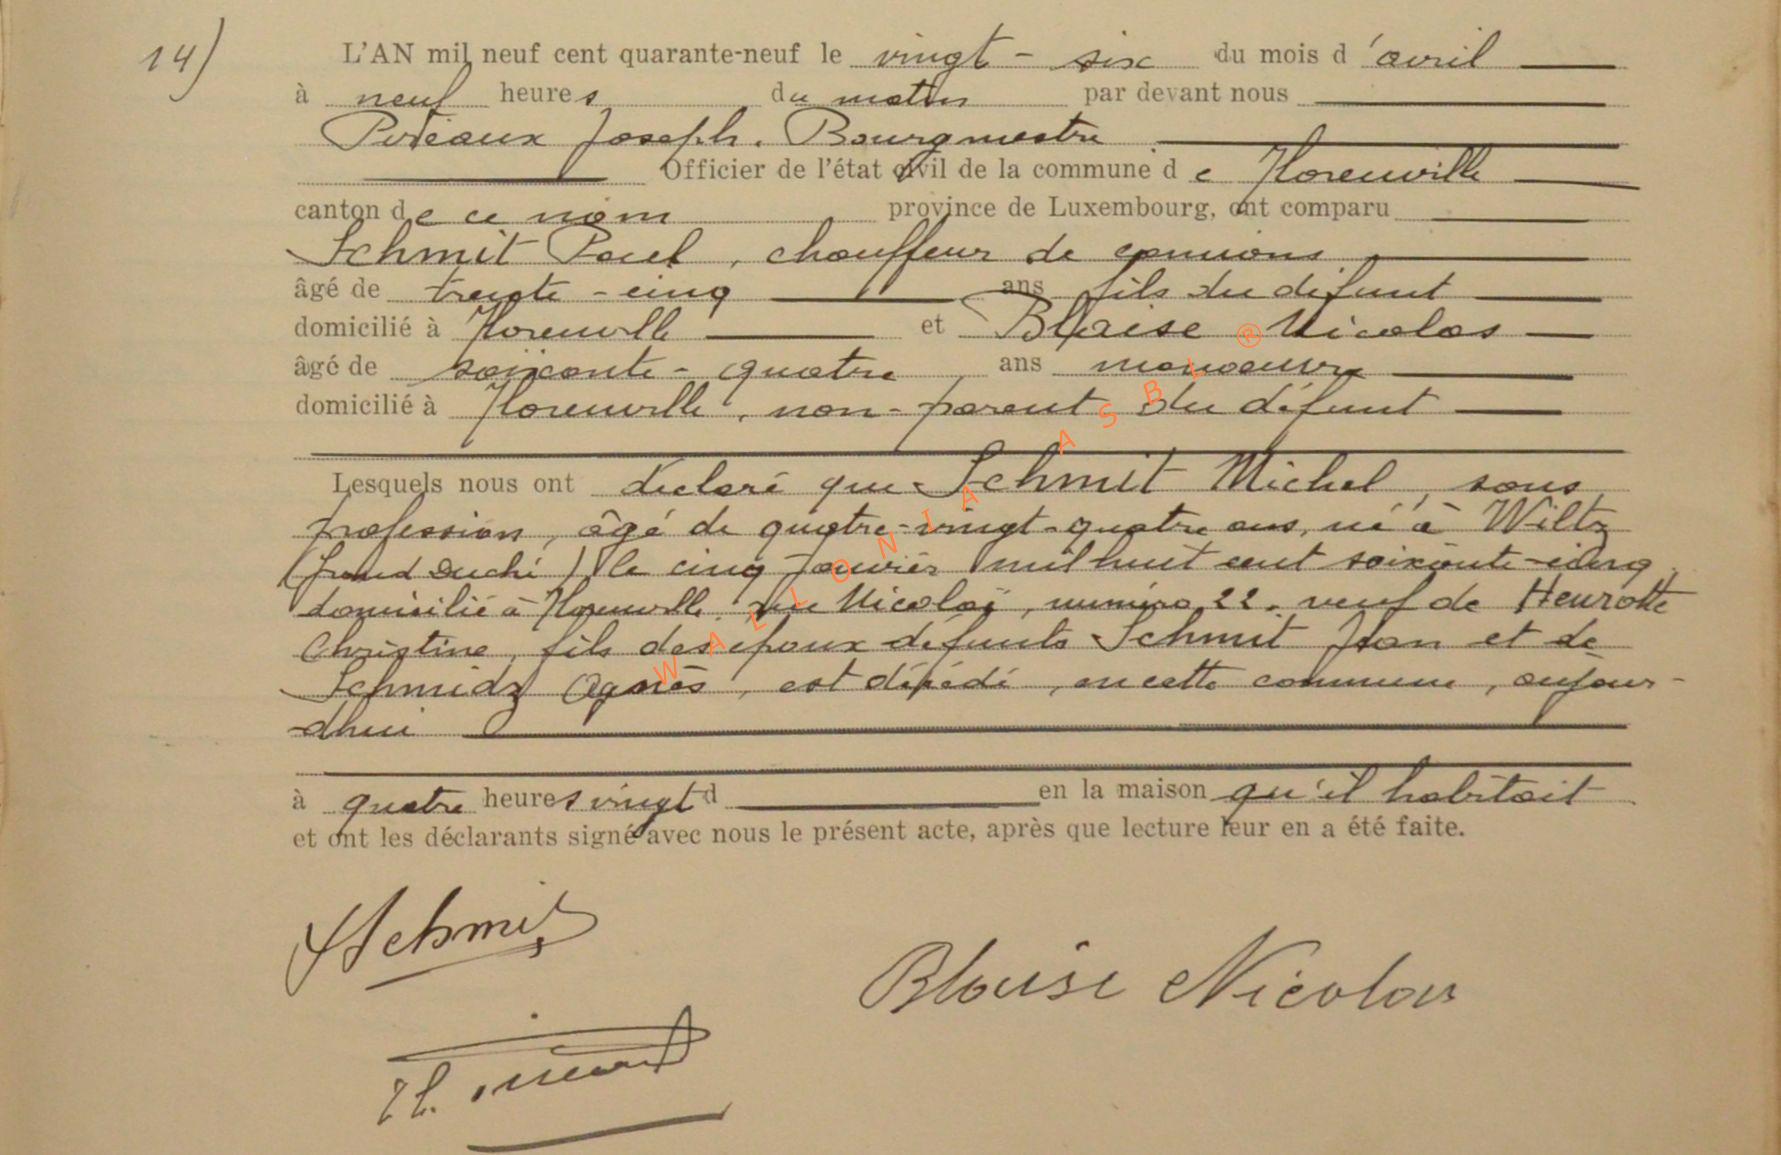 14)
L'AN mil neuf cent quarante-neuf le vingt - six du mois d'avril
à neuf heures du matin par devant nous
Puteaux Joseph. Bourgmestre
Officier de l'état civil de la commune de Florenville
canton de ce nom province de Luxembourg, ont comparu
Schmit Paul, chauffeur de camions
âgé de trente-cinq ans fils du défunt
domicilié à Florenville et Blaise Nicolas
âgé de soixante-quatre ans manoeuvre
domicilié à Florenville, non-parent du défunt
Lesquels nous ont déclaré que Schmit Michel, sans
profession, âgé de quatre-vingt-quatre ans, né à Wiltz
(Grand Duché) le cinq Janvier mil huit cent soixante-cinq
domicilié à Florenville, rue Nicolaï, numéro 22. veuf de Henrotte
Christine, fils des époux défunts Schmit Jean et de
Schmidz Agnès, est décédé, en cette commune, aujour-
dhui
à quatre heures vingt d en la maison qu'il habitait
et ont les déclarants signé avec nous le présent acte, après que lecture leur en a été faite.
Schmit
Blaise Nicolas
WALLONIA ASBL ®